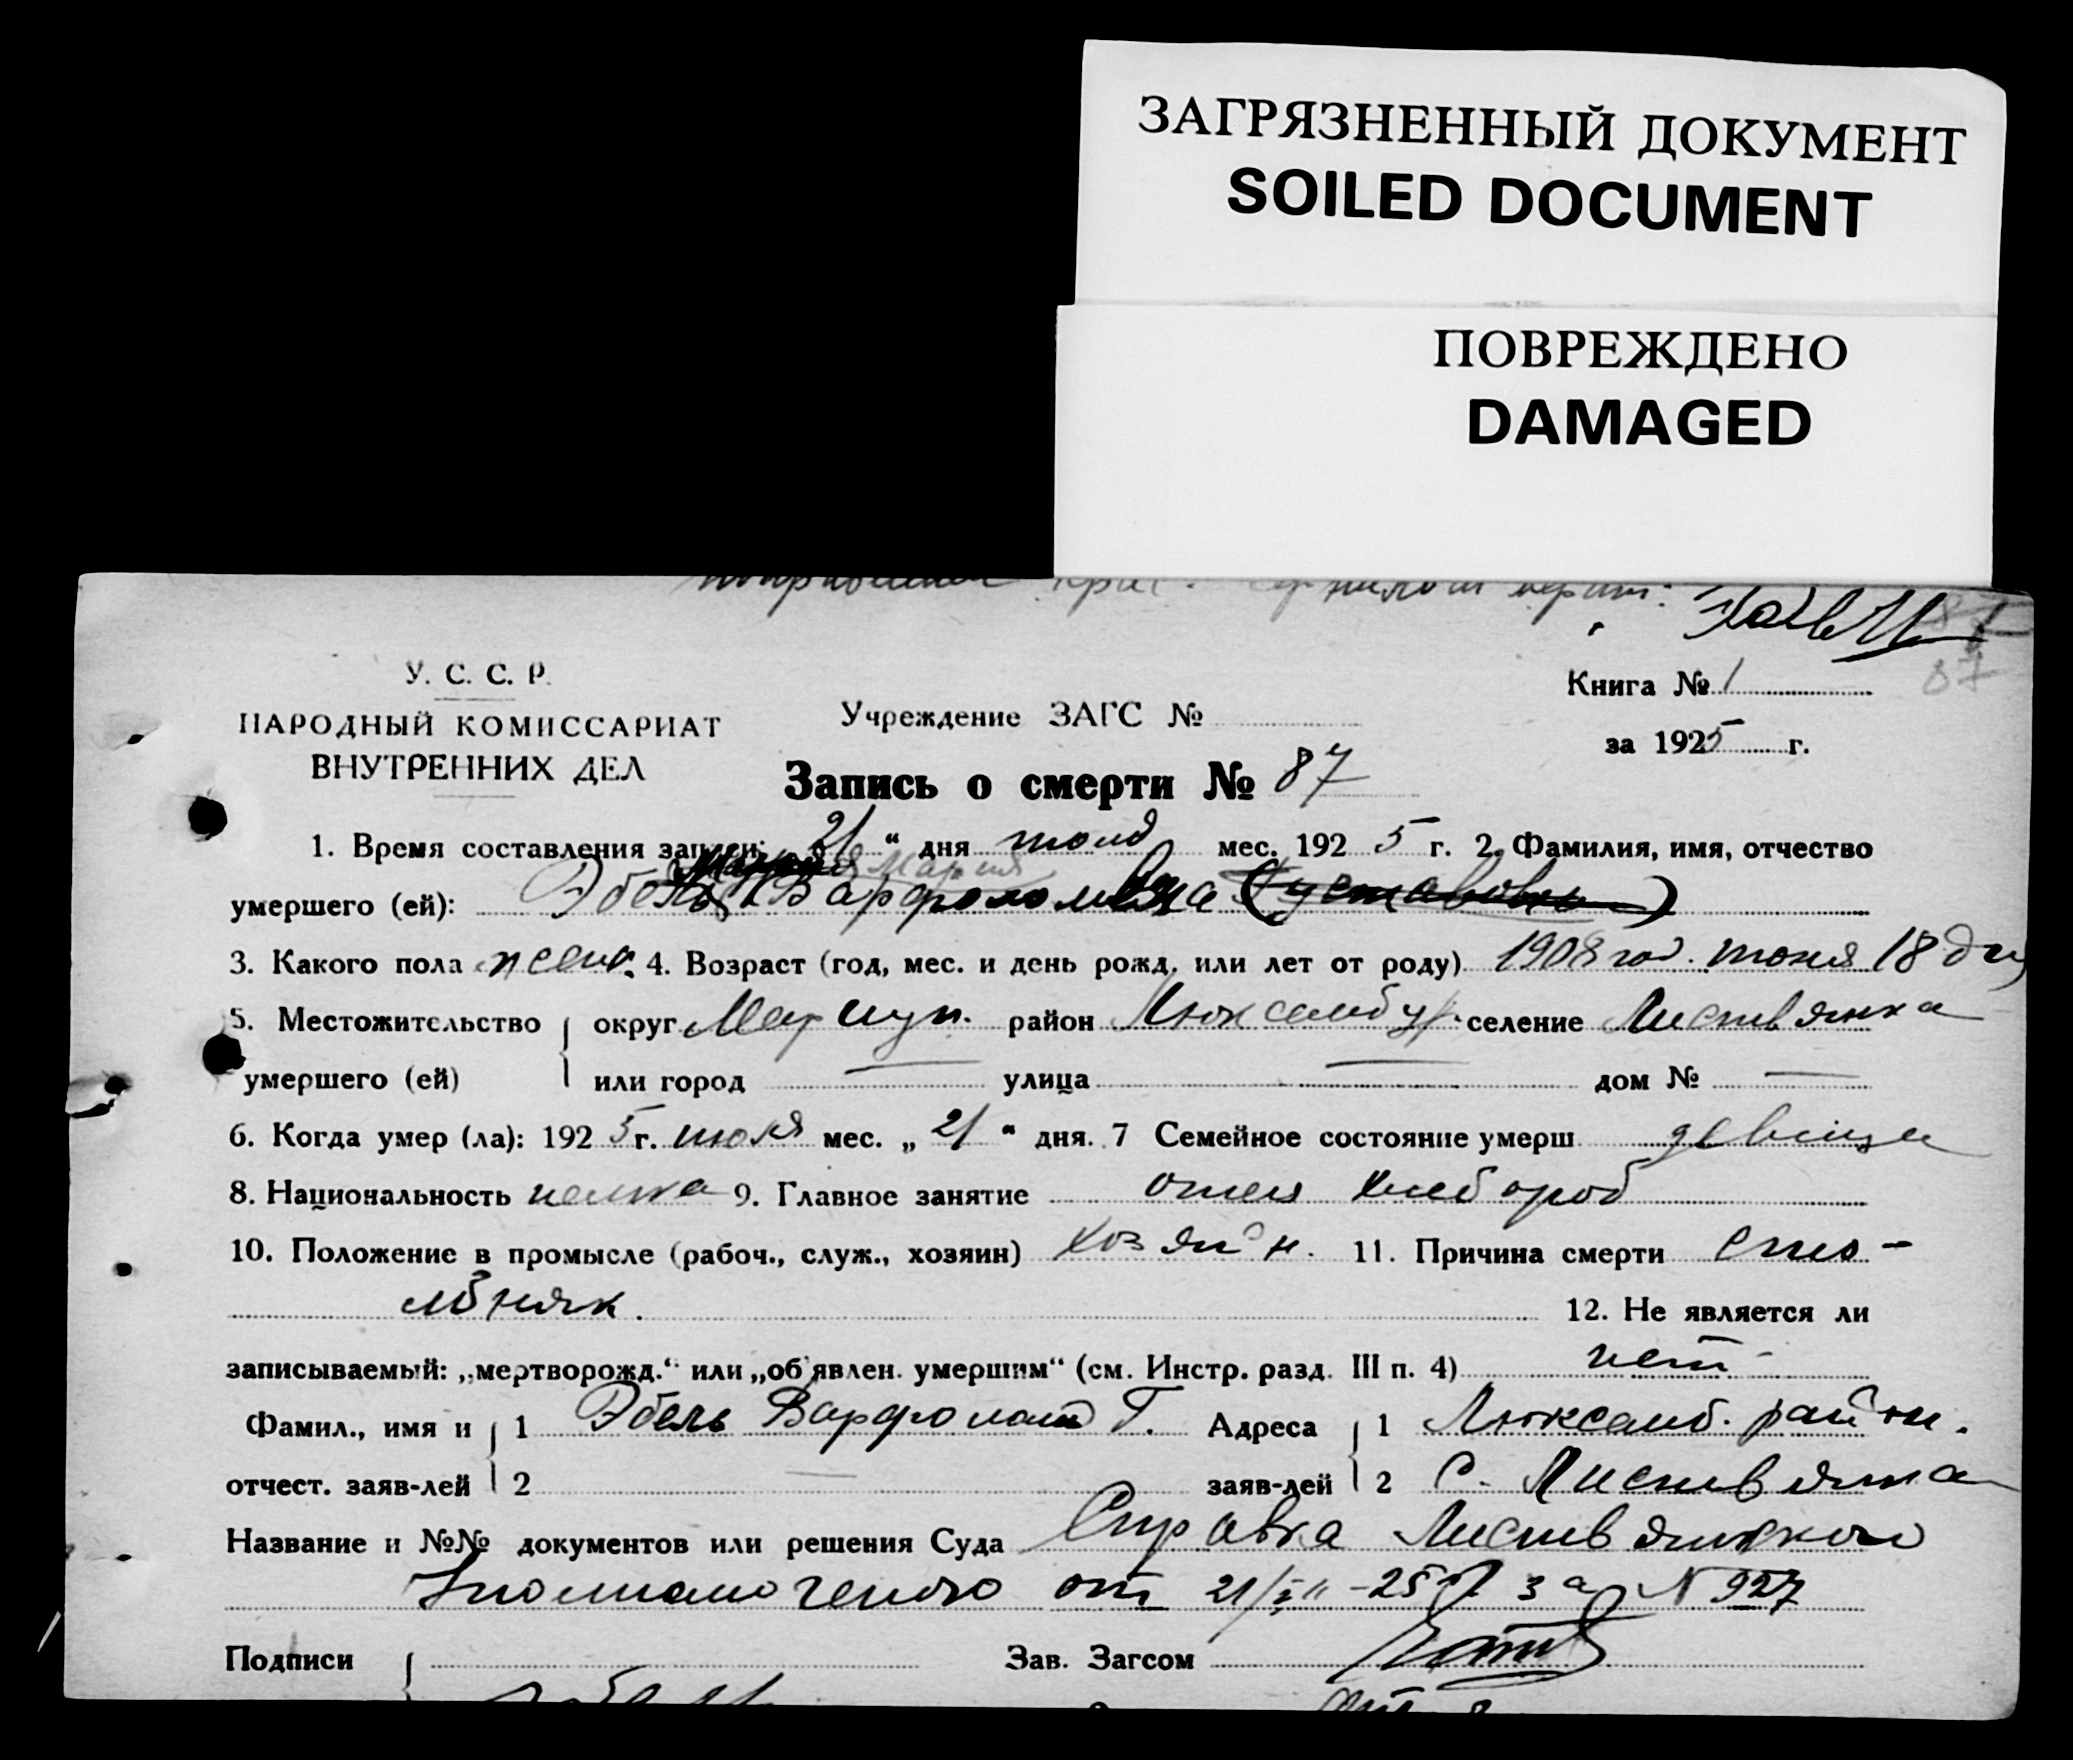 ЗАГРЯЗНЕННЫЙ ДОКУМЕНТ
SOILED DOCUMENT
ПОВРЕЖДЕНО
DAMAGED
87
87
У. С. С. Р.
НАРОДНЫЙ КОМИССАРИАТ
ВНУТРЕННИХ ДЕЛ
Учреждение ЗАГС №
Книга № 1
за 1925 г.
Запись о смерти № 87
1. Время составления записи: 21 “ дня июля мес. 192 5 г. 2. Фамилия, имя, отчество
Мария
умершего (ей): Эбель Варфоломевна (Густавовна)
3. Какого пола женс. 4. Возраст (год, мес. и день рожд. или лет от роду) 1908 год. июня 18 дн
5. Местожительство округ Мариуп. район Люксембур. селение Листвянка
умершего (ей) или город — улица — дом № —
6. Когда умер (ла): 192 5 г. июля мес. „ 21 “ дня. 7 Семейное состояние умерш девица
8. Национальность немка 9. Главное занятие отец хлебороб
10. Положение в промысле (рабоч., служ., хозяин) хозяин. 11. Причина смерти сто-
лбняк. 12. Не является ли
записываемый: „мертворожд.“ или „об'явлен. умершим“ (см. Инстр. разд. III п. 4) нет
Фамил., имя и 1 Эбель Варфоломей Г. Адреса 1 Люксемб. район.
отчест. заяв-лей 2 — заяв-лей 2 с. Листвянка
Название и №№ документов или решения Суда Справка Листвянского
Уполномоченого от 21/VII-25 г за N 927
Подписи Зав. Загсом